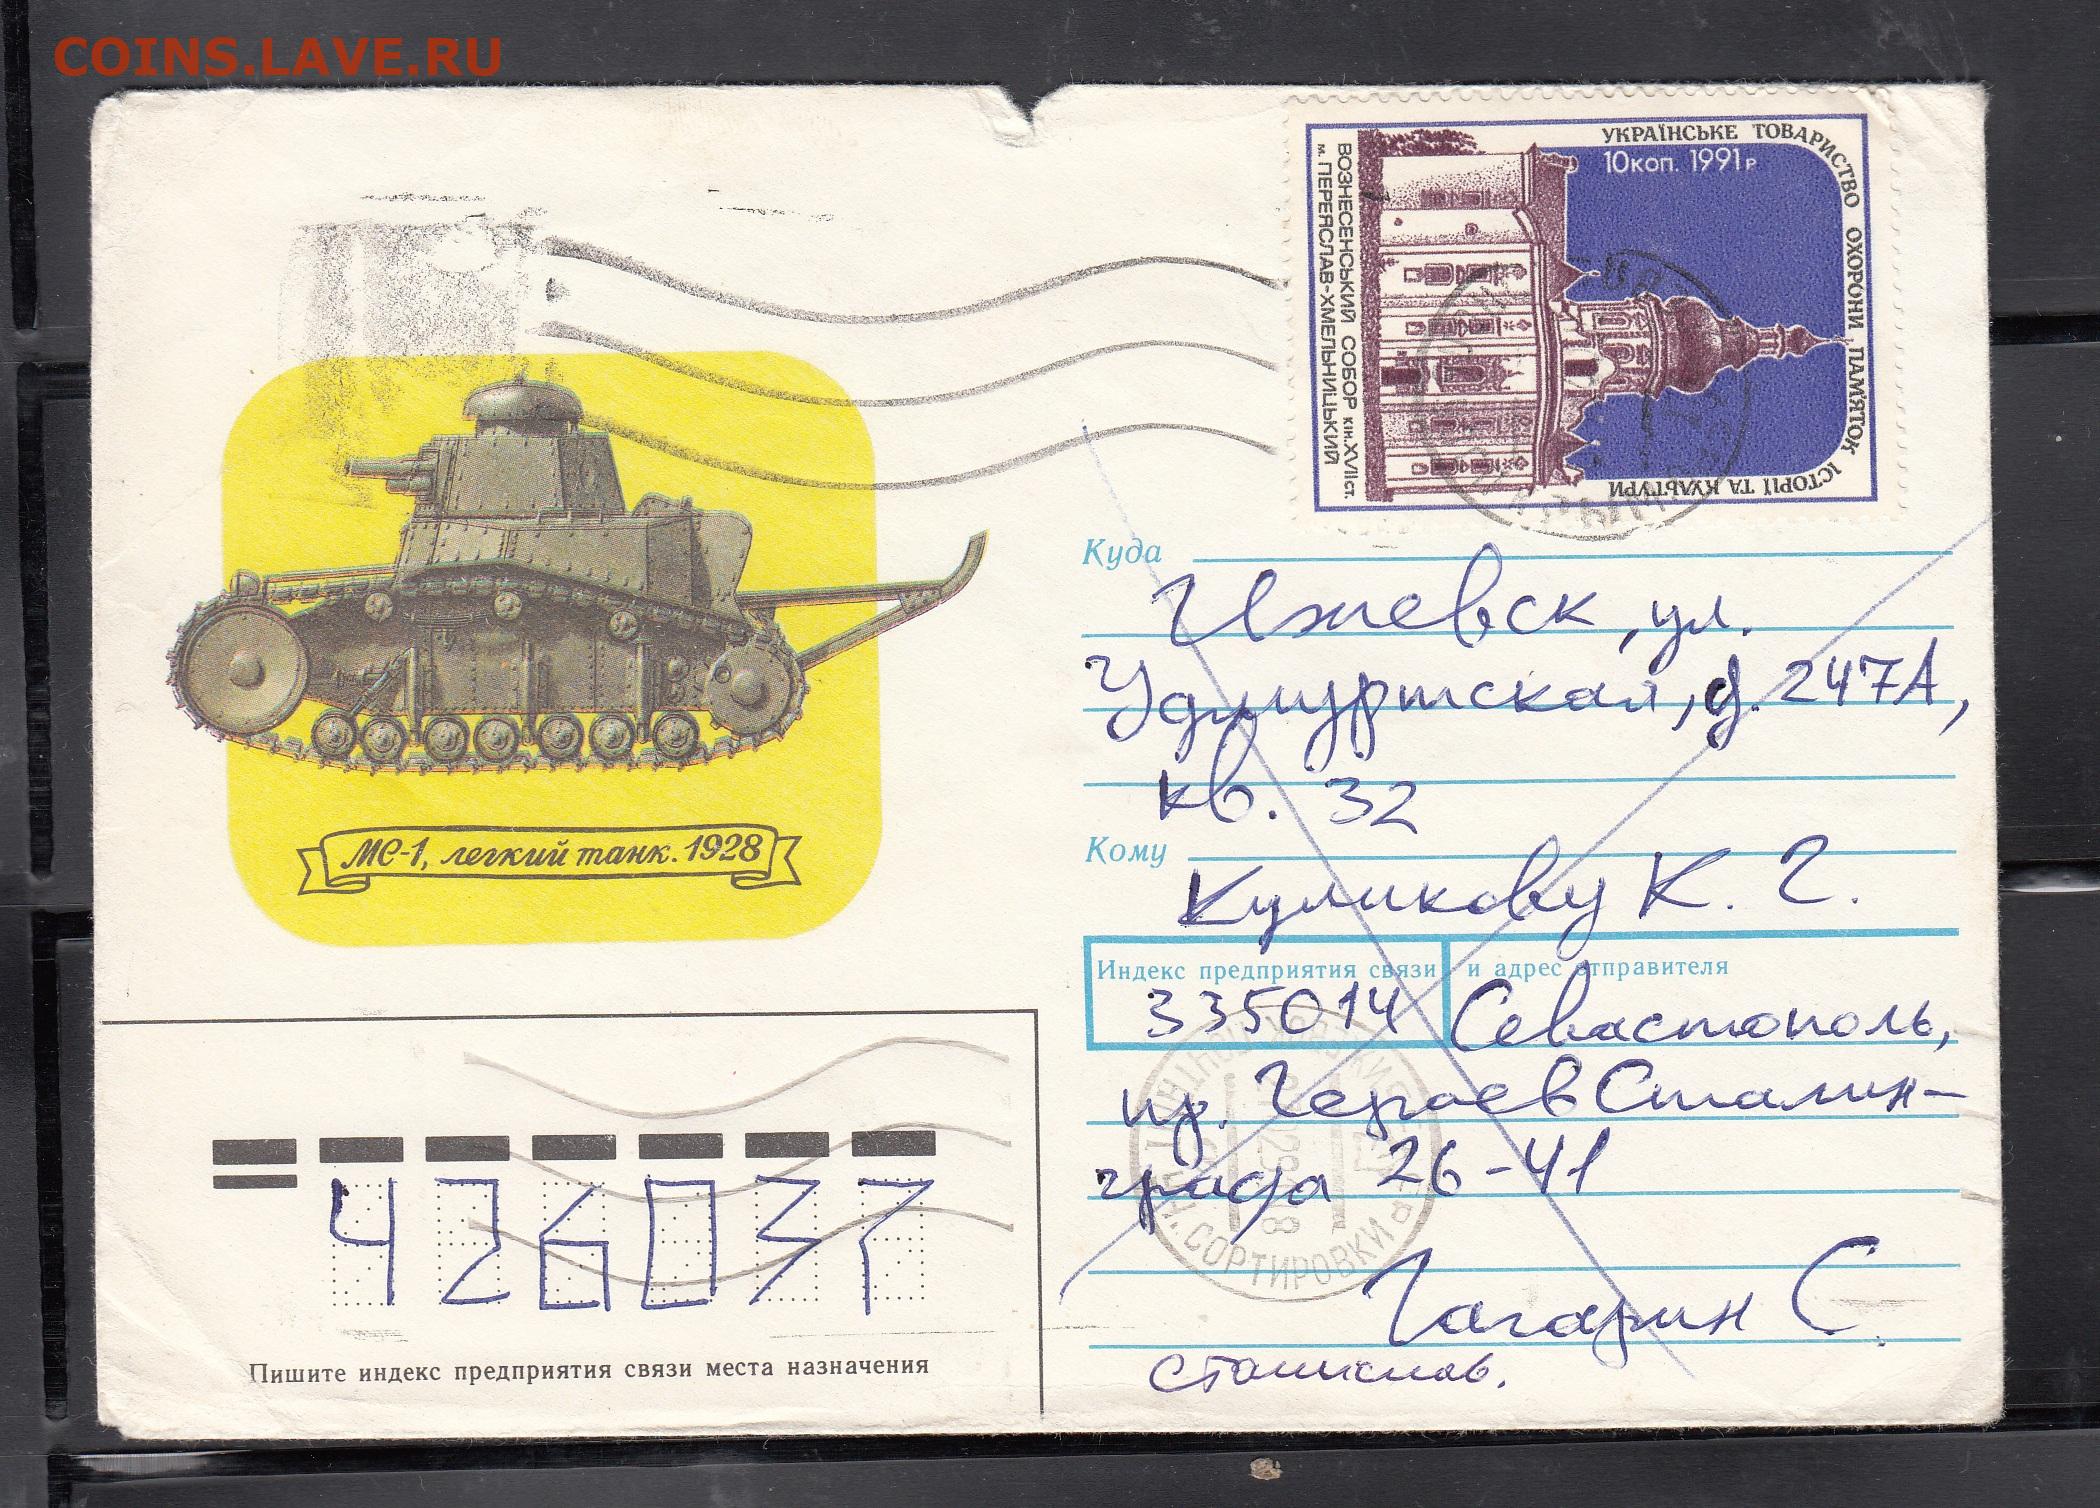 COINS.LAVE.RU
УКРАЇНСЬКЕ ТОВАРИСТВО ОХОРОНИ ПАМ'ЯТОК ІСТОРІЇ ТА КУЛЬТУРИ
10 коп. 1991 р
ВОЗНЕСЕНСЬКИЙ СОБОР кін. XVII ст.
м. ПЕРЕЯСЛАВ-ХМЕЛЬНИЦЬКИЙ
МС-1, легкий танк. 1928
Куда
Ижевск, ул.
Удмуртская, д. 247А,
кв. 32
Кому
Куликову К. Г.
Индекс предприятия связи и адрес отправителя
335014 Севастополь,
пр. Героев Сталин-
града 26-41
Гагарин С
Станислав.
СОРТИРОВКИ
426037
Пишите индекс предприятия связи места назначения